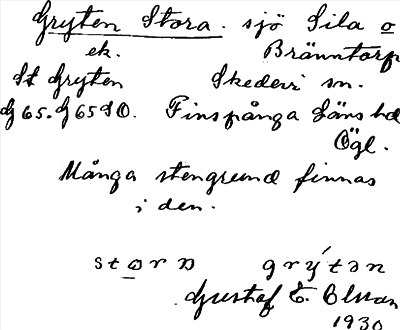 Gryten Stora. sjö Sila o
ek. Bränntorp
St Gryten Skedevi sn.
Gj 65. Gj 65 SO. Finspånga läns hd
Ögl.
Många stengrund finnas
i den.
stora grýtən
Gustaf E. Olsson
1930